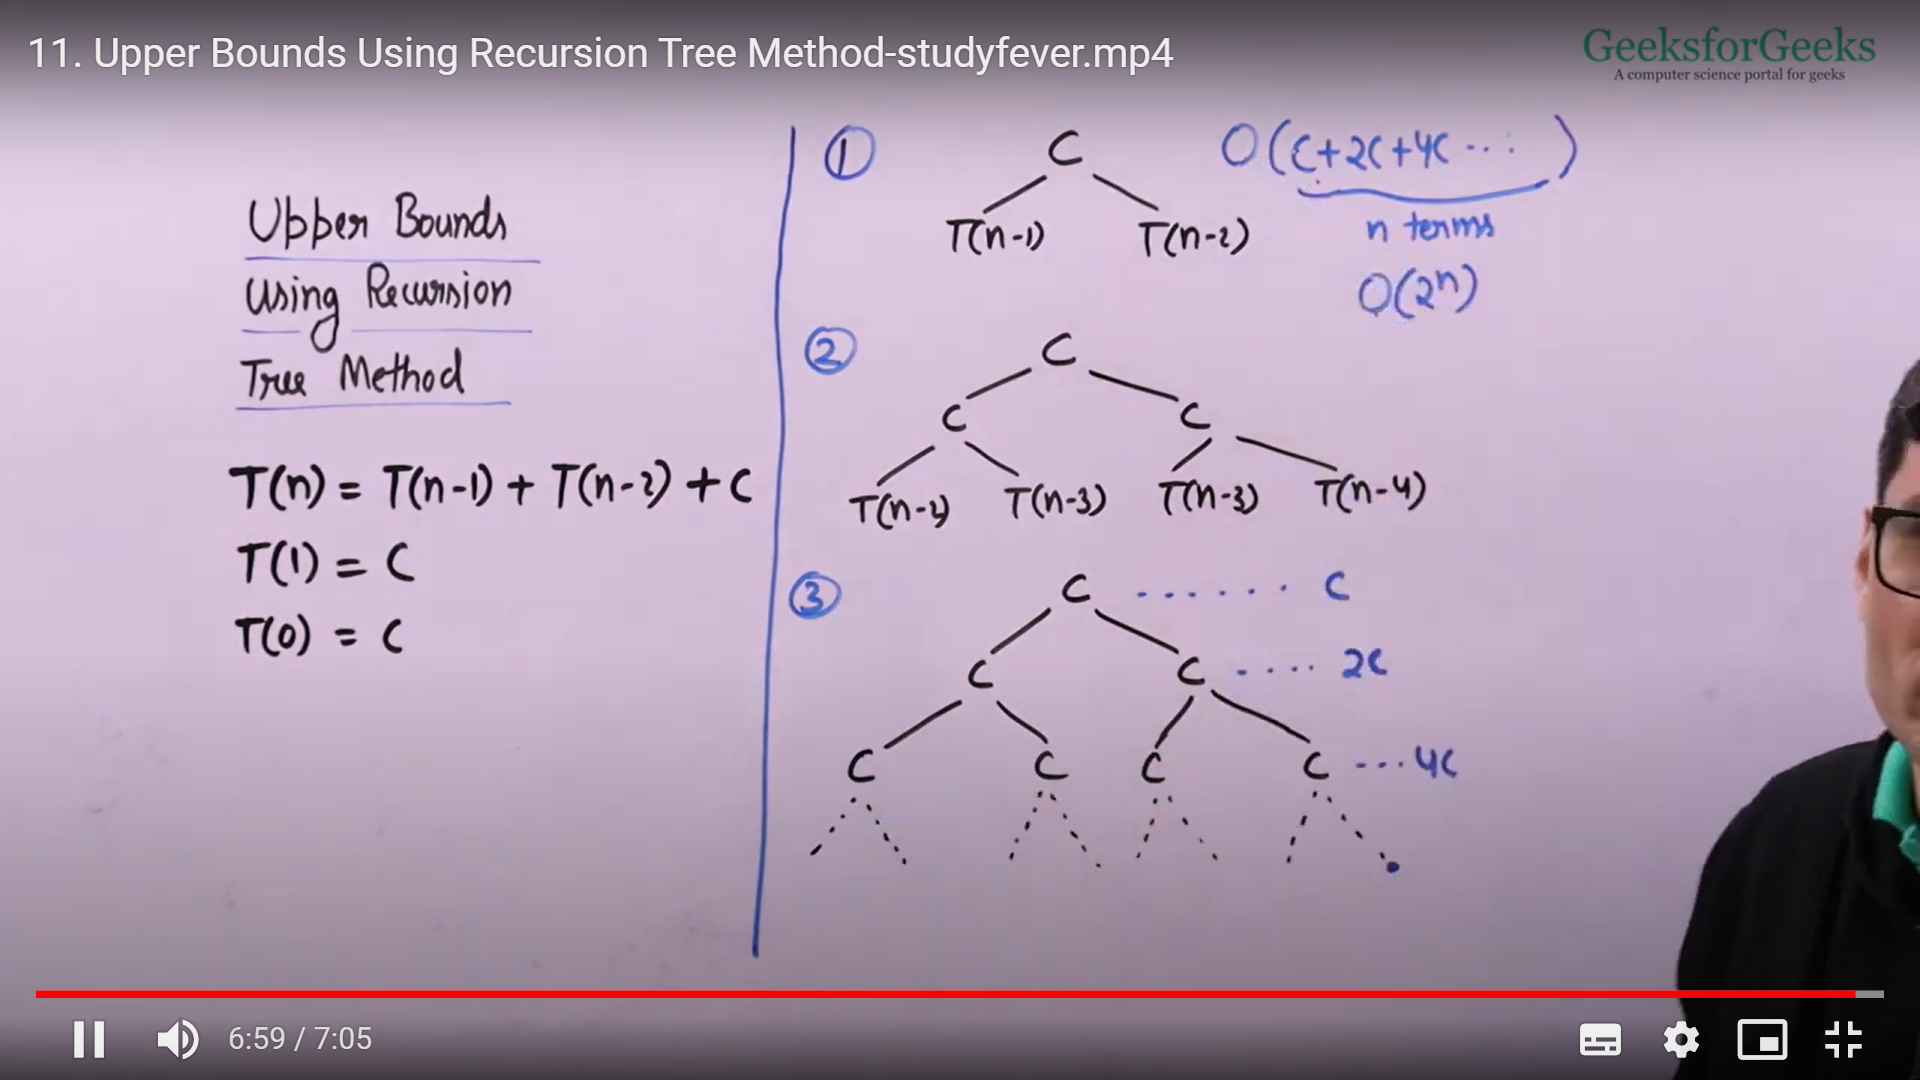 11. Upper Bounds Using Recursion Tree Method-studyfever.mp4
GeeksforGeeks
A computer science portal for geeks
Upper Bounds
Using Recursion
Tree Method
T(n) = T(n-1) + T(n-2) + C
T(1) = C
T(0) = C
①
C
T(n-1) T(n-2)
O(C+2C+4C ... )
n terms
O(2ⁿ)
②
C
C C
T(n-2) T(n-3) T(n-3) T(n-4)
③
C ...... C
C C .... 2C
C C C C ... 4C
6:59 / 7:05